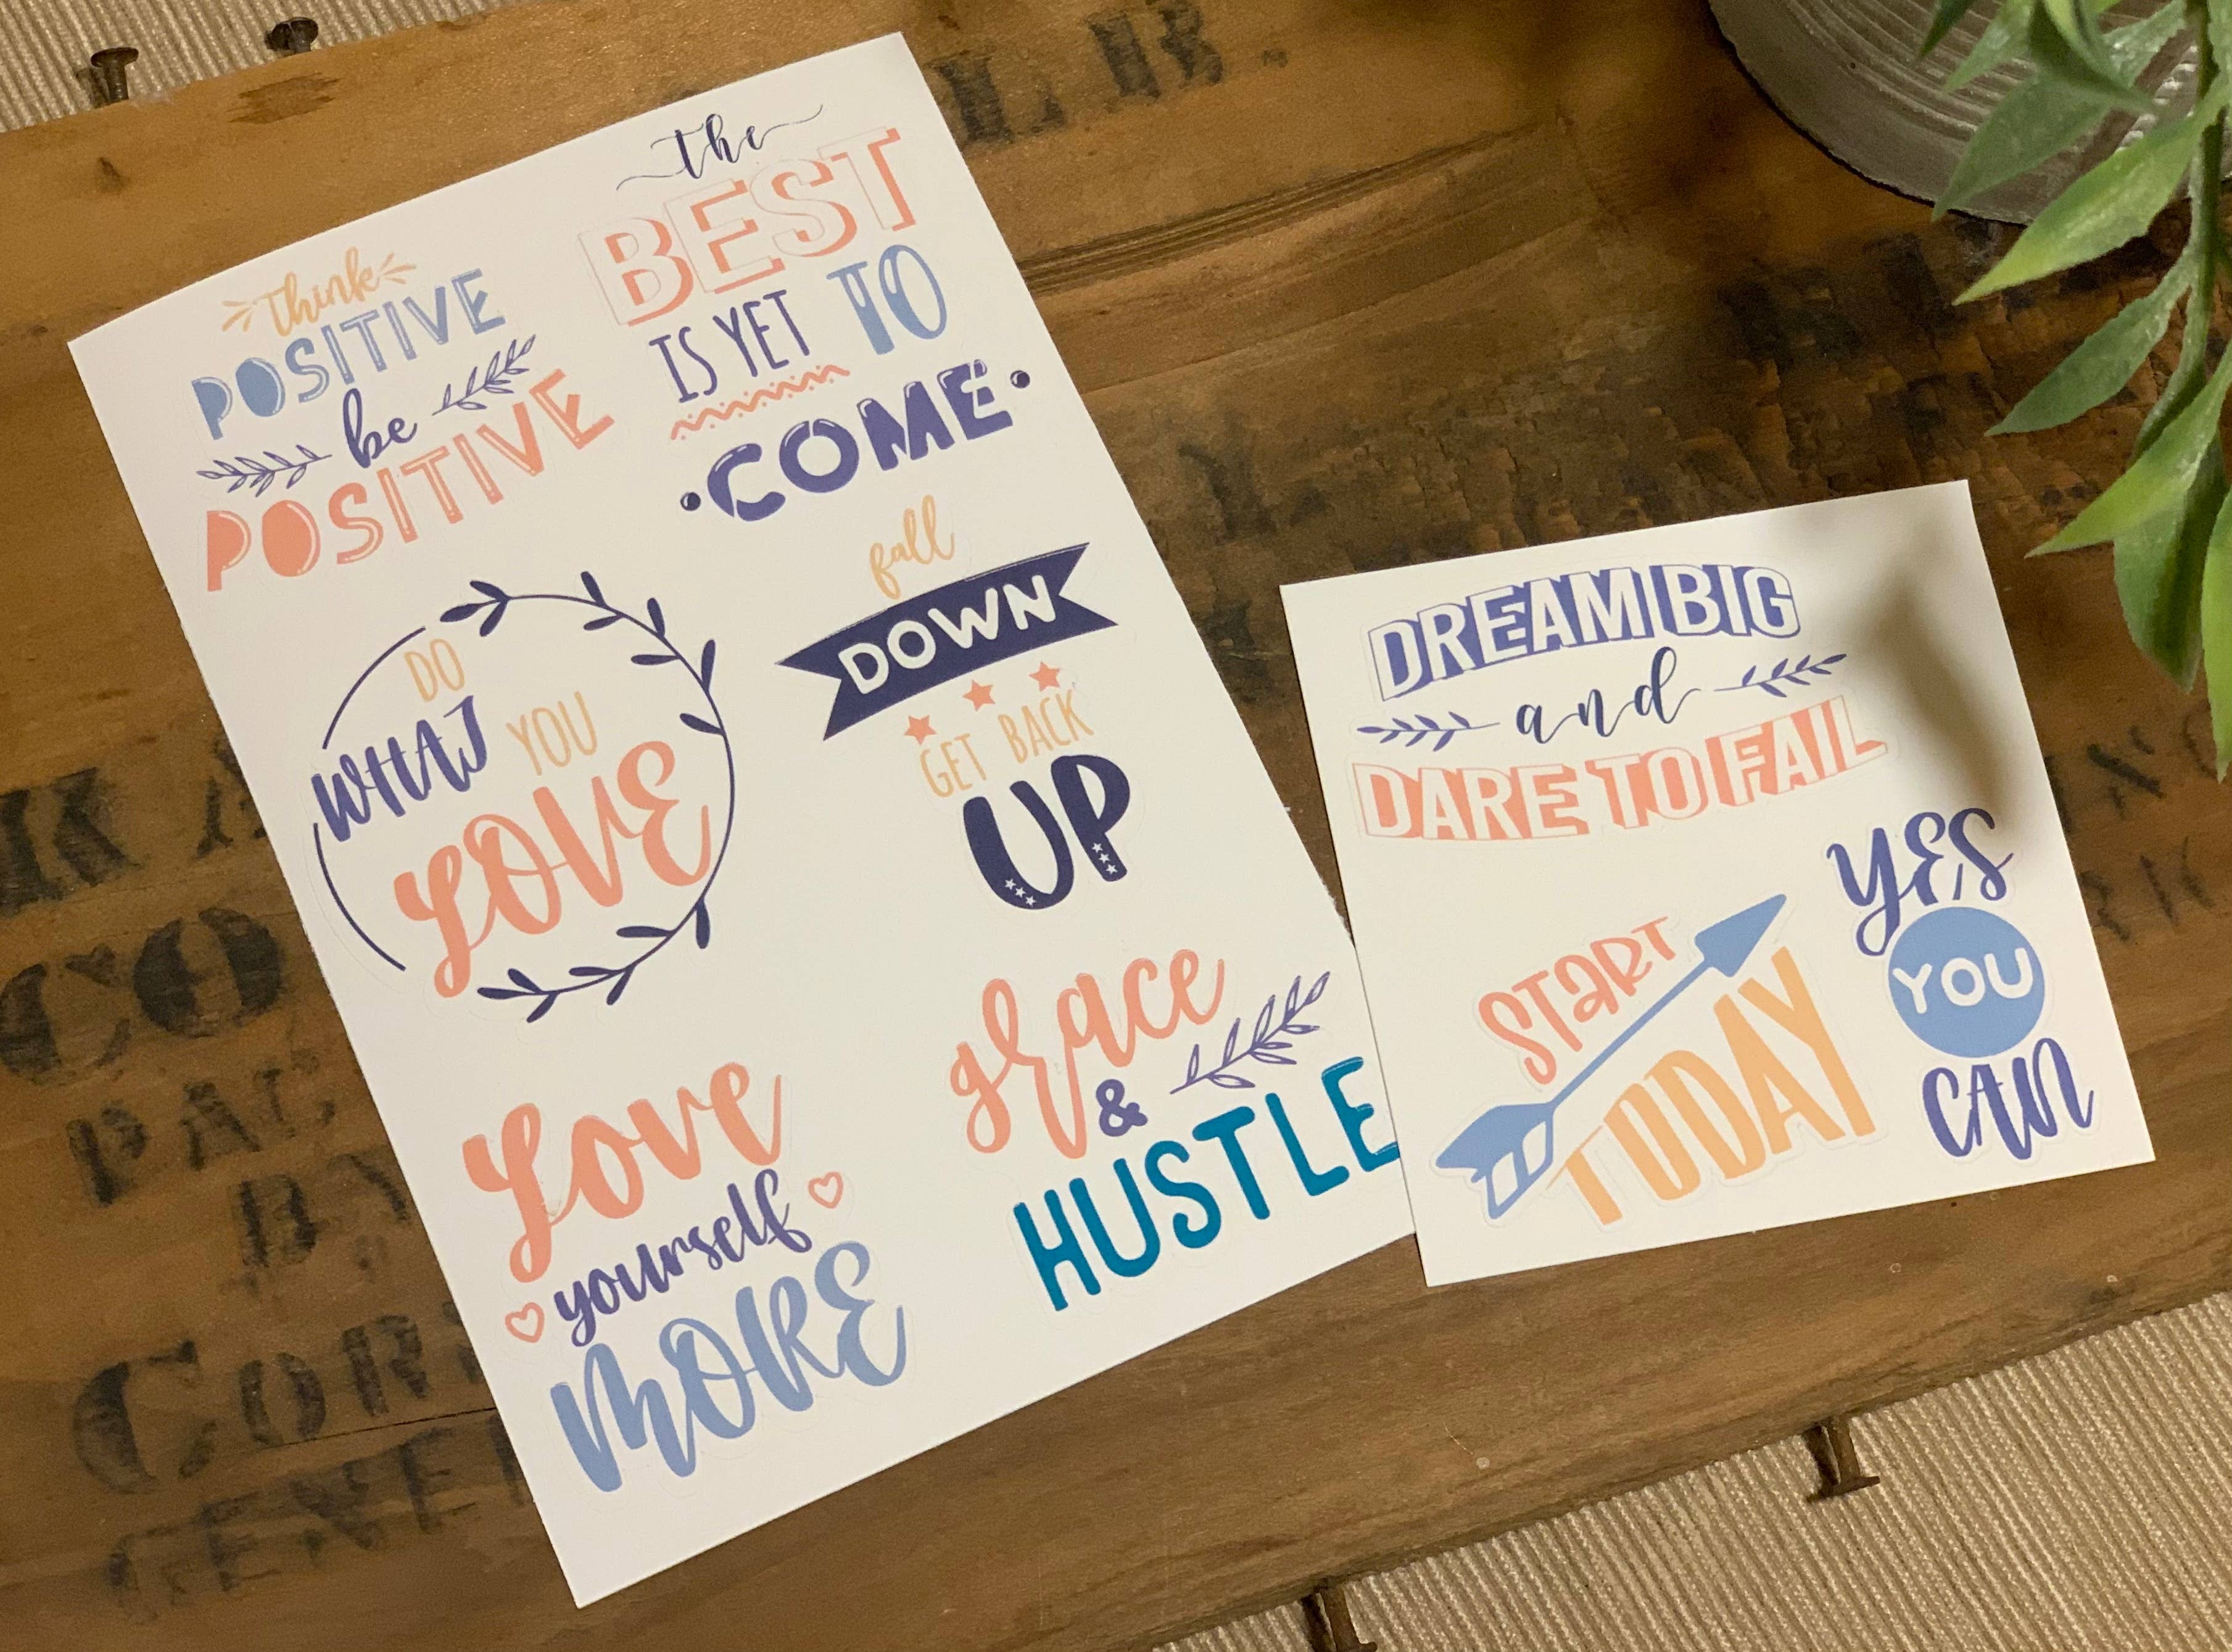 Think
POSITIVE
be
POSITIVE
the
BEST
IS YET TO
COME
DO
WHAT YOU
LOVE
fall
DOWN
GET BACK
UP
Love
yourself
MORE
grace
&
HUSTLE
DREAM BIG
and
DARE TO FAIL
START
TODAY
YES
YOU
CAN
L B.
CO
BY